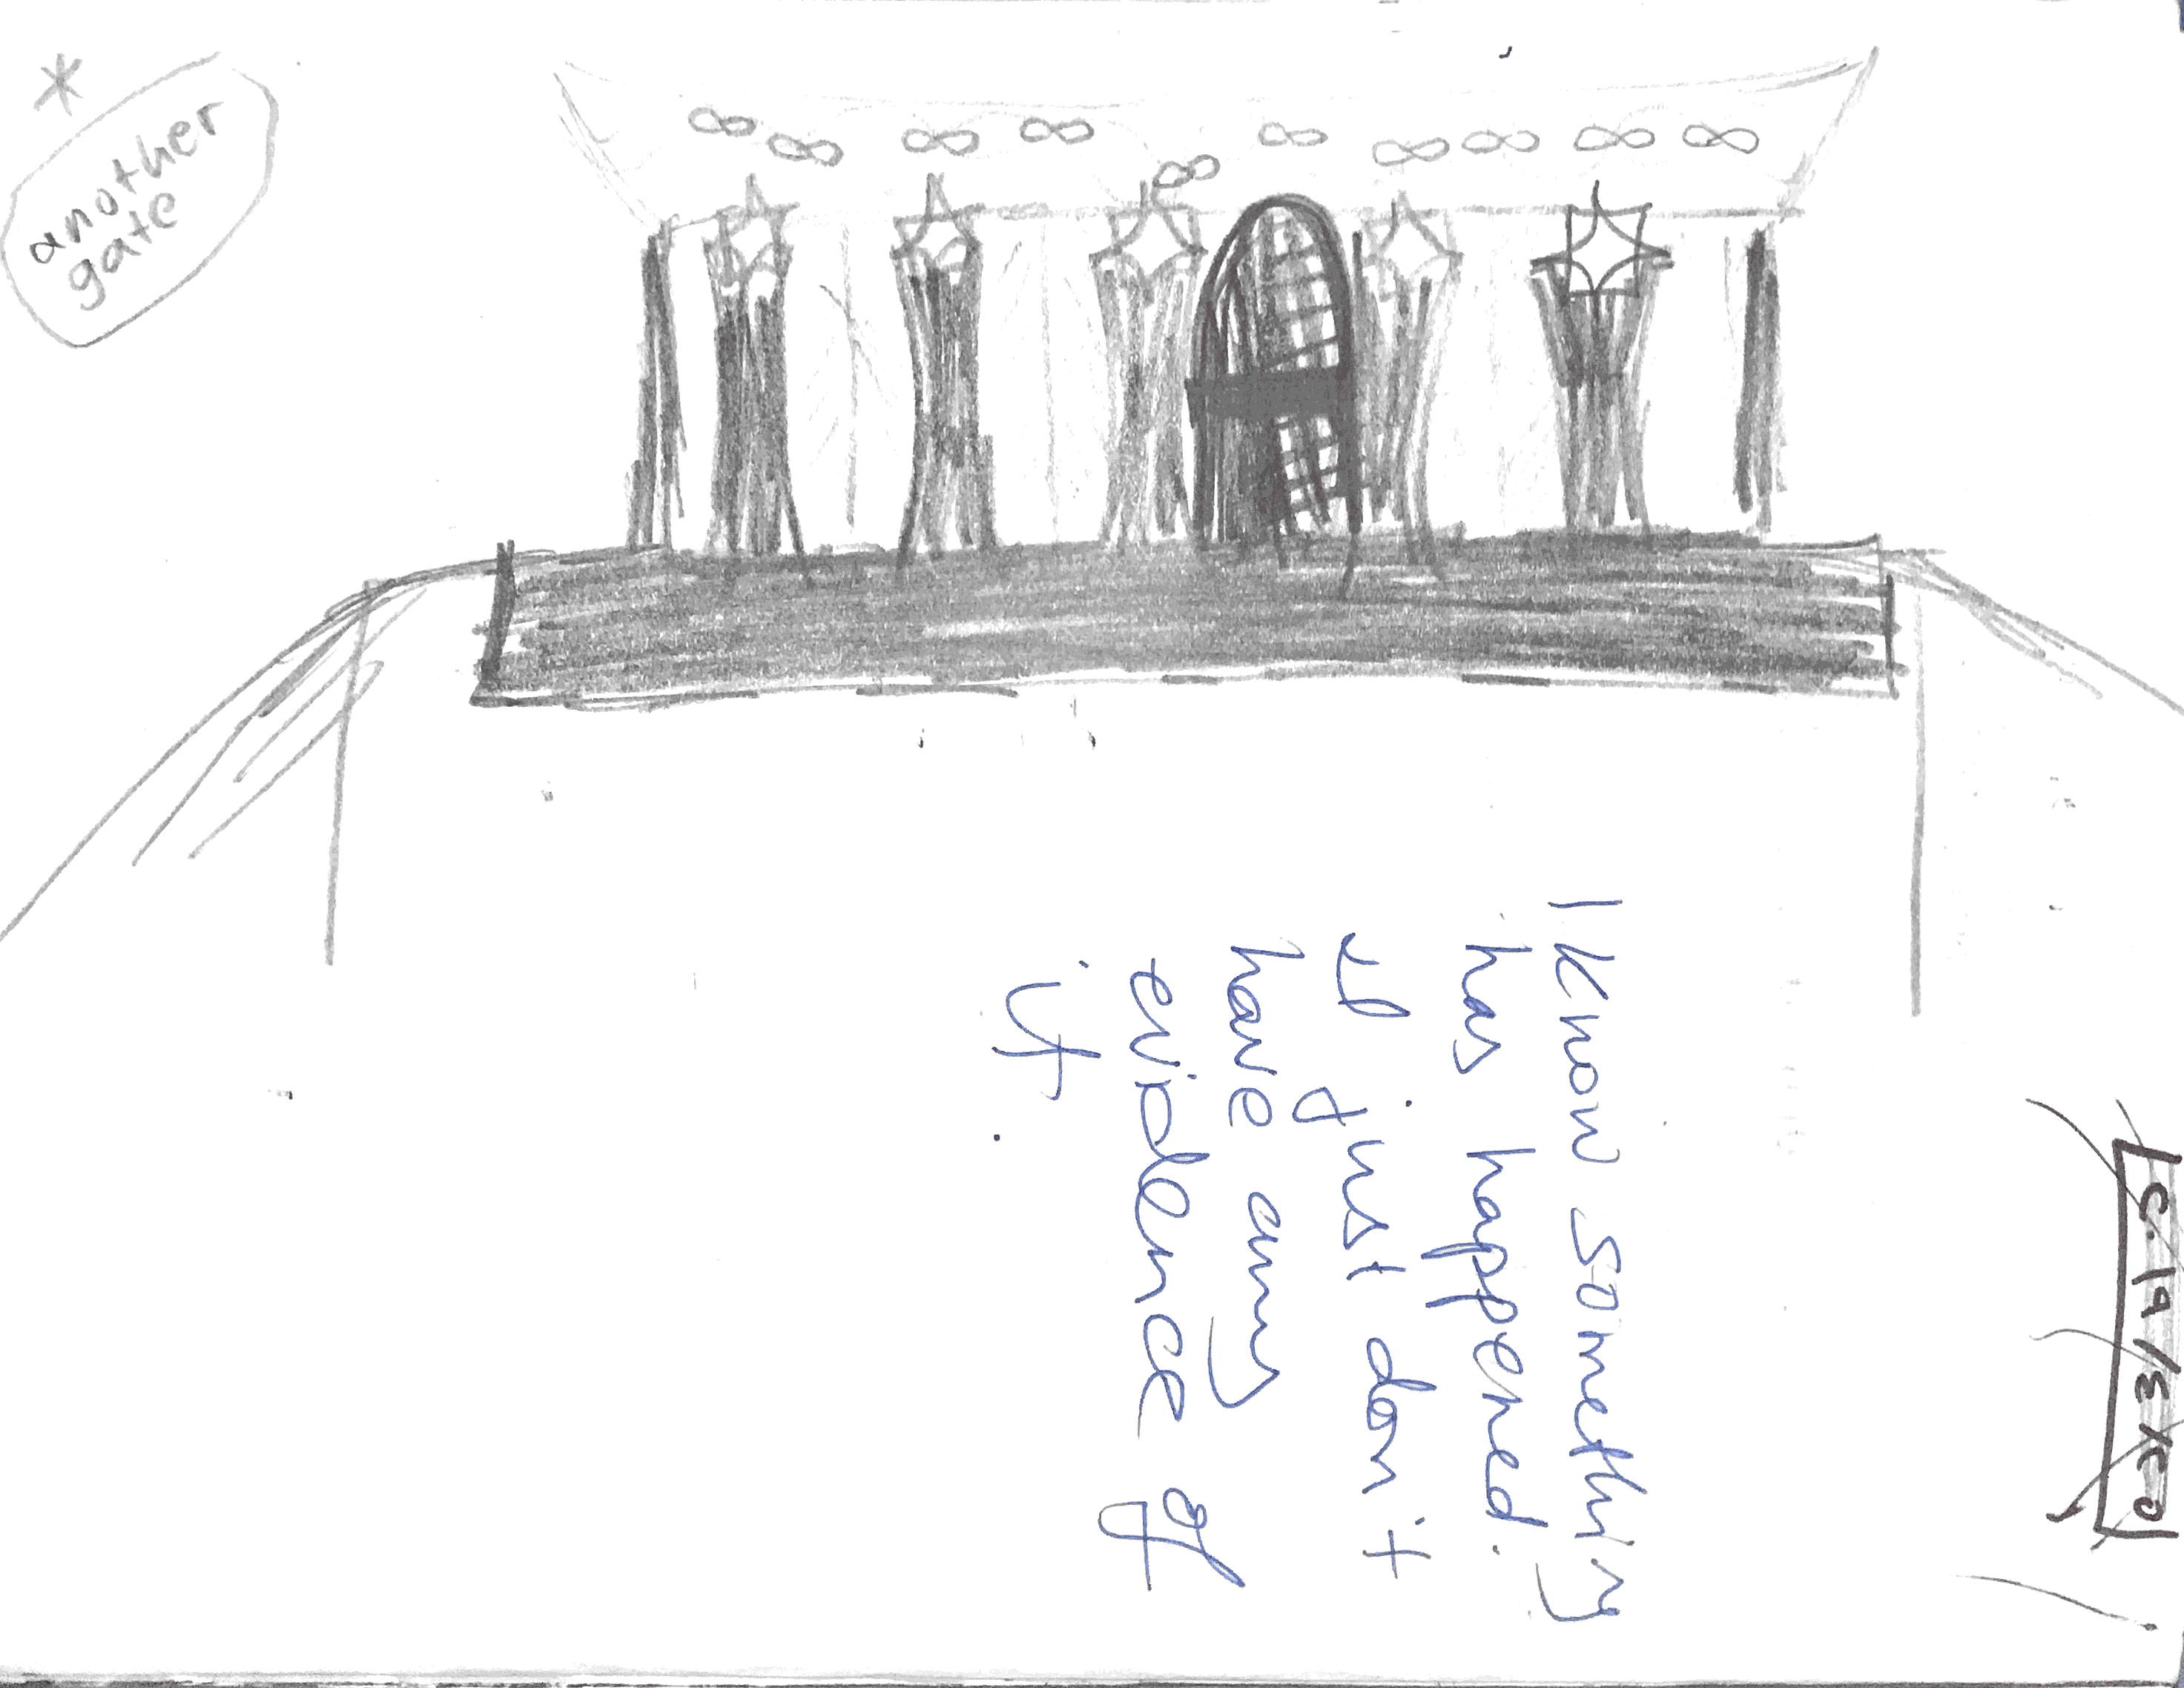 *
another
gate
I know something
has happened.
I just don't
have any
evidence of
it.